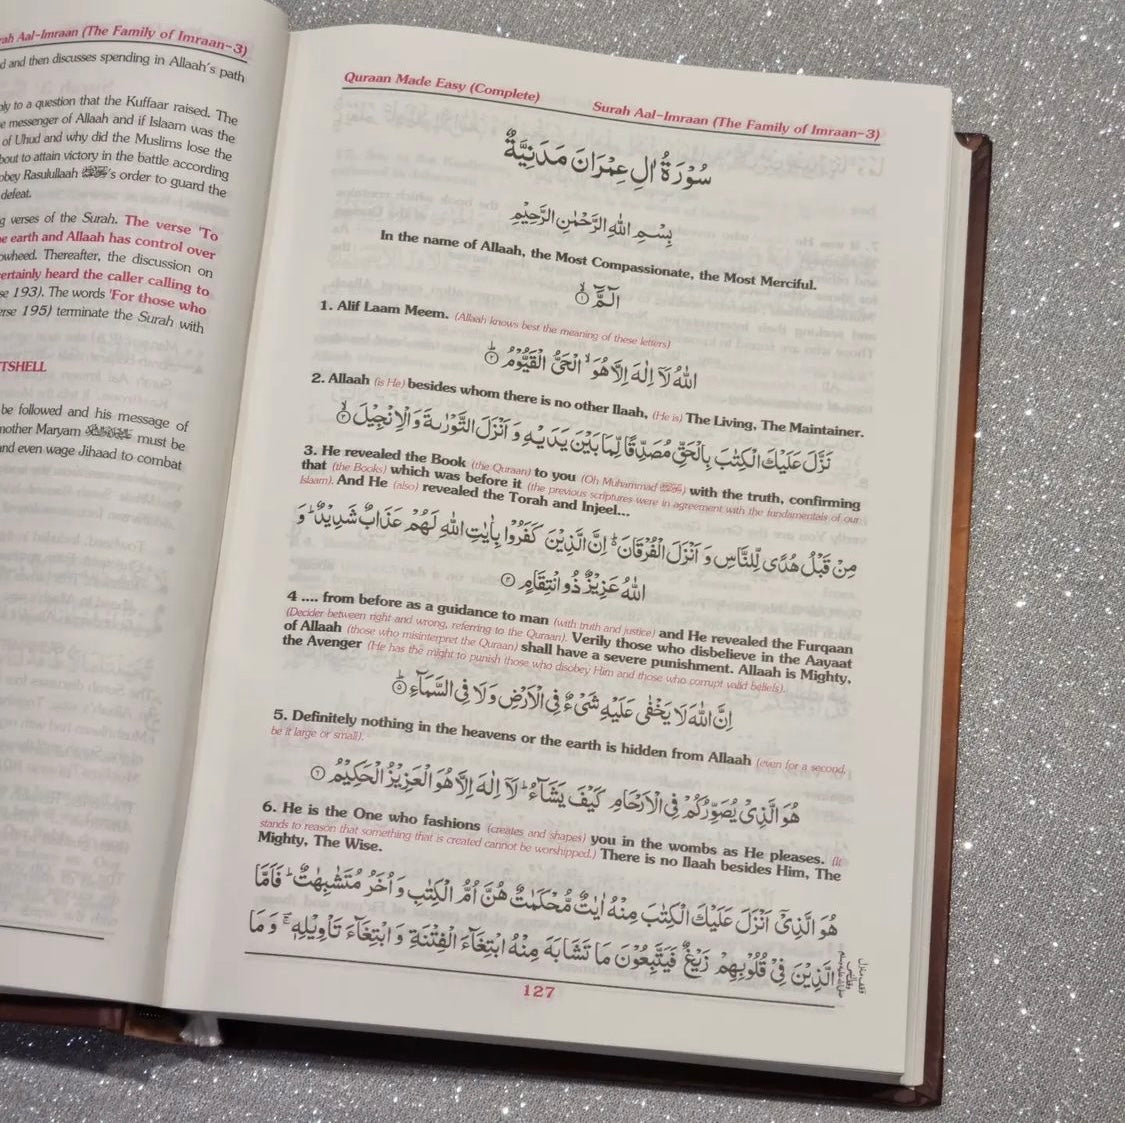 rah Aal-Imraan (The Family of Imraan-3)
d and then discusses spending in Allaah's path
ly to a question that the Kuffaar raised. The
e messenger of Allaah and if Islaam was the
of Uhud and why did the Muslims lose the
bout to attain victory in the battle according
obey Rasulullaah ﷺ's order to guard the
defeat.
g verses of the Surah. The verse 'To
e earth and Allaah has control over
owheed. Thereafter, the discussion on
ertainly heard the caller calling to
se 193). The words 'For those who
erse 195) terminate the Surah with
TSHELL
be followed and his message of
mother Maryam must be
and even wage Jihaad to combat
Quraan Made Easy (Complete)
Surah Aal-Imraan (The Family of Imraan-3)
سُوْرَةُ اٰلِ عِمْرَانَ مَدَنِيَّةٌ
بِسْمِ اللّٰهِ الرَّحْمٰنِ الرَّحِيْمِ
In the name of Allaah, the Most Compassionate, the Most Merciful.
الٓمَّٓ ۙ﴿١﴾
1. Alif Laam Meem. (Allaah knows best the meaning of these letters)
اللّٰهُ لَاۤ اِلٰهَ اِلَّا هُوَ ۙ الْحَيُّ الْقَيُّوْمُ ؕ﴿٢﴾
2. Allaah (is He) besides whom there is no other Ilaah, (He is) The Living, The Maintainer.
نَزَّلَ عَلَيْكَ الْكِتٰبَ بِالْحَقِّ مُصَدِّقًا لِّمَا بَيْنَ يَدَيْهِ وَ اَنْزَلَ التَّوْرٰىةَ وَ الْاِنْجِيْلَ ۙ﴿٣﴾
3. He revealed the Book (the Quraan) to you (Oh Muhammad ﷺ) with the truth, confirming
that (the Books) which was before it (the previous scriptures were in agreement with the fundamentals of our
Islaam). And He (also) revealed the Torah and Injeel...
مِنْ قَبْلُ هُدًى لِّلنَّاسِ وَ اَنْزَلَ الْفُرْقَانَ ؕ اِنَّ الَّذِيْنَ كَفَرُوْا بِاٰيٰتِ اللّٰهِ لَهُمْ عَذَابٌ شَدِيْدٌ ؕ وَ
اللّٰهُ عَزِيْزٌ ذُو انْتِقَامٍ ﴿٤﴾
4 .... from before as a guidance to man (with truth and justice) and He revealed the Furqaan
(Decider between right and wrong, referring to the Quraan). Verily those who disbelieve in the Aayaat
of Allaah (those who misinterpret the Quraan) shall have a severe punishment. Allaah is Mighty,
the Avenger (He has the might to punish those who disobey Him and those who corrupt valid beliefs).
اِنَّ اللّٰهَ لَا يَخْفٰى عَلَيْهِ شَيْءٌ فِي الْاَرْضِ وَ لَا فِي السَّمَآءِ ؕ﴿٥﴾
5. Definitely nothing in the heavens or the earth is hidden from Allaah (even for a second,
be it large or small).
هُوَ الَّذِيْ يُصَوِّرُكُمْ فِي الْاَرْحَامِ كَيْفَ يَشَآءُ ؕ لَاۤ اِلٰهَ اِلَّا هُوَ الْعَزِيْزُ الْحَكِيْمُ ﴿٦﴾
6. He is the One who fashions (creates and shapes) you in the wombs as He pleases. (It
stands to reason that something that is created cannot be worshipped.) There is no Ilaah besides Him, The
Mighty, The Wise.
هُوَ الَّذِيْۤ اَنْزَلَ عَلَيْكَ الْكِتٰبَ مِنْهُ اٰيٰتٌ مُّحْكَمٰتٌ هُنَّ اُمُّ الْكِتٰبِ وَ اُخَرُ مُتَشٰبِهٰتٌ ؕ فَاَمَّا
الَّذِيْنَ فِيْ قُلُوْبِهِمْ زَيْغٌ فَيَتَّبِعُوْنَ مَا تَشَابَهَ مِنْهُ ابْتِغَآءَ الْفِتْنَةِ وَ ابْتِغَآءَ تَاْوِيْلِهٖ ۚ وَ مَا
127